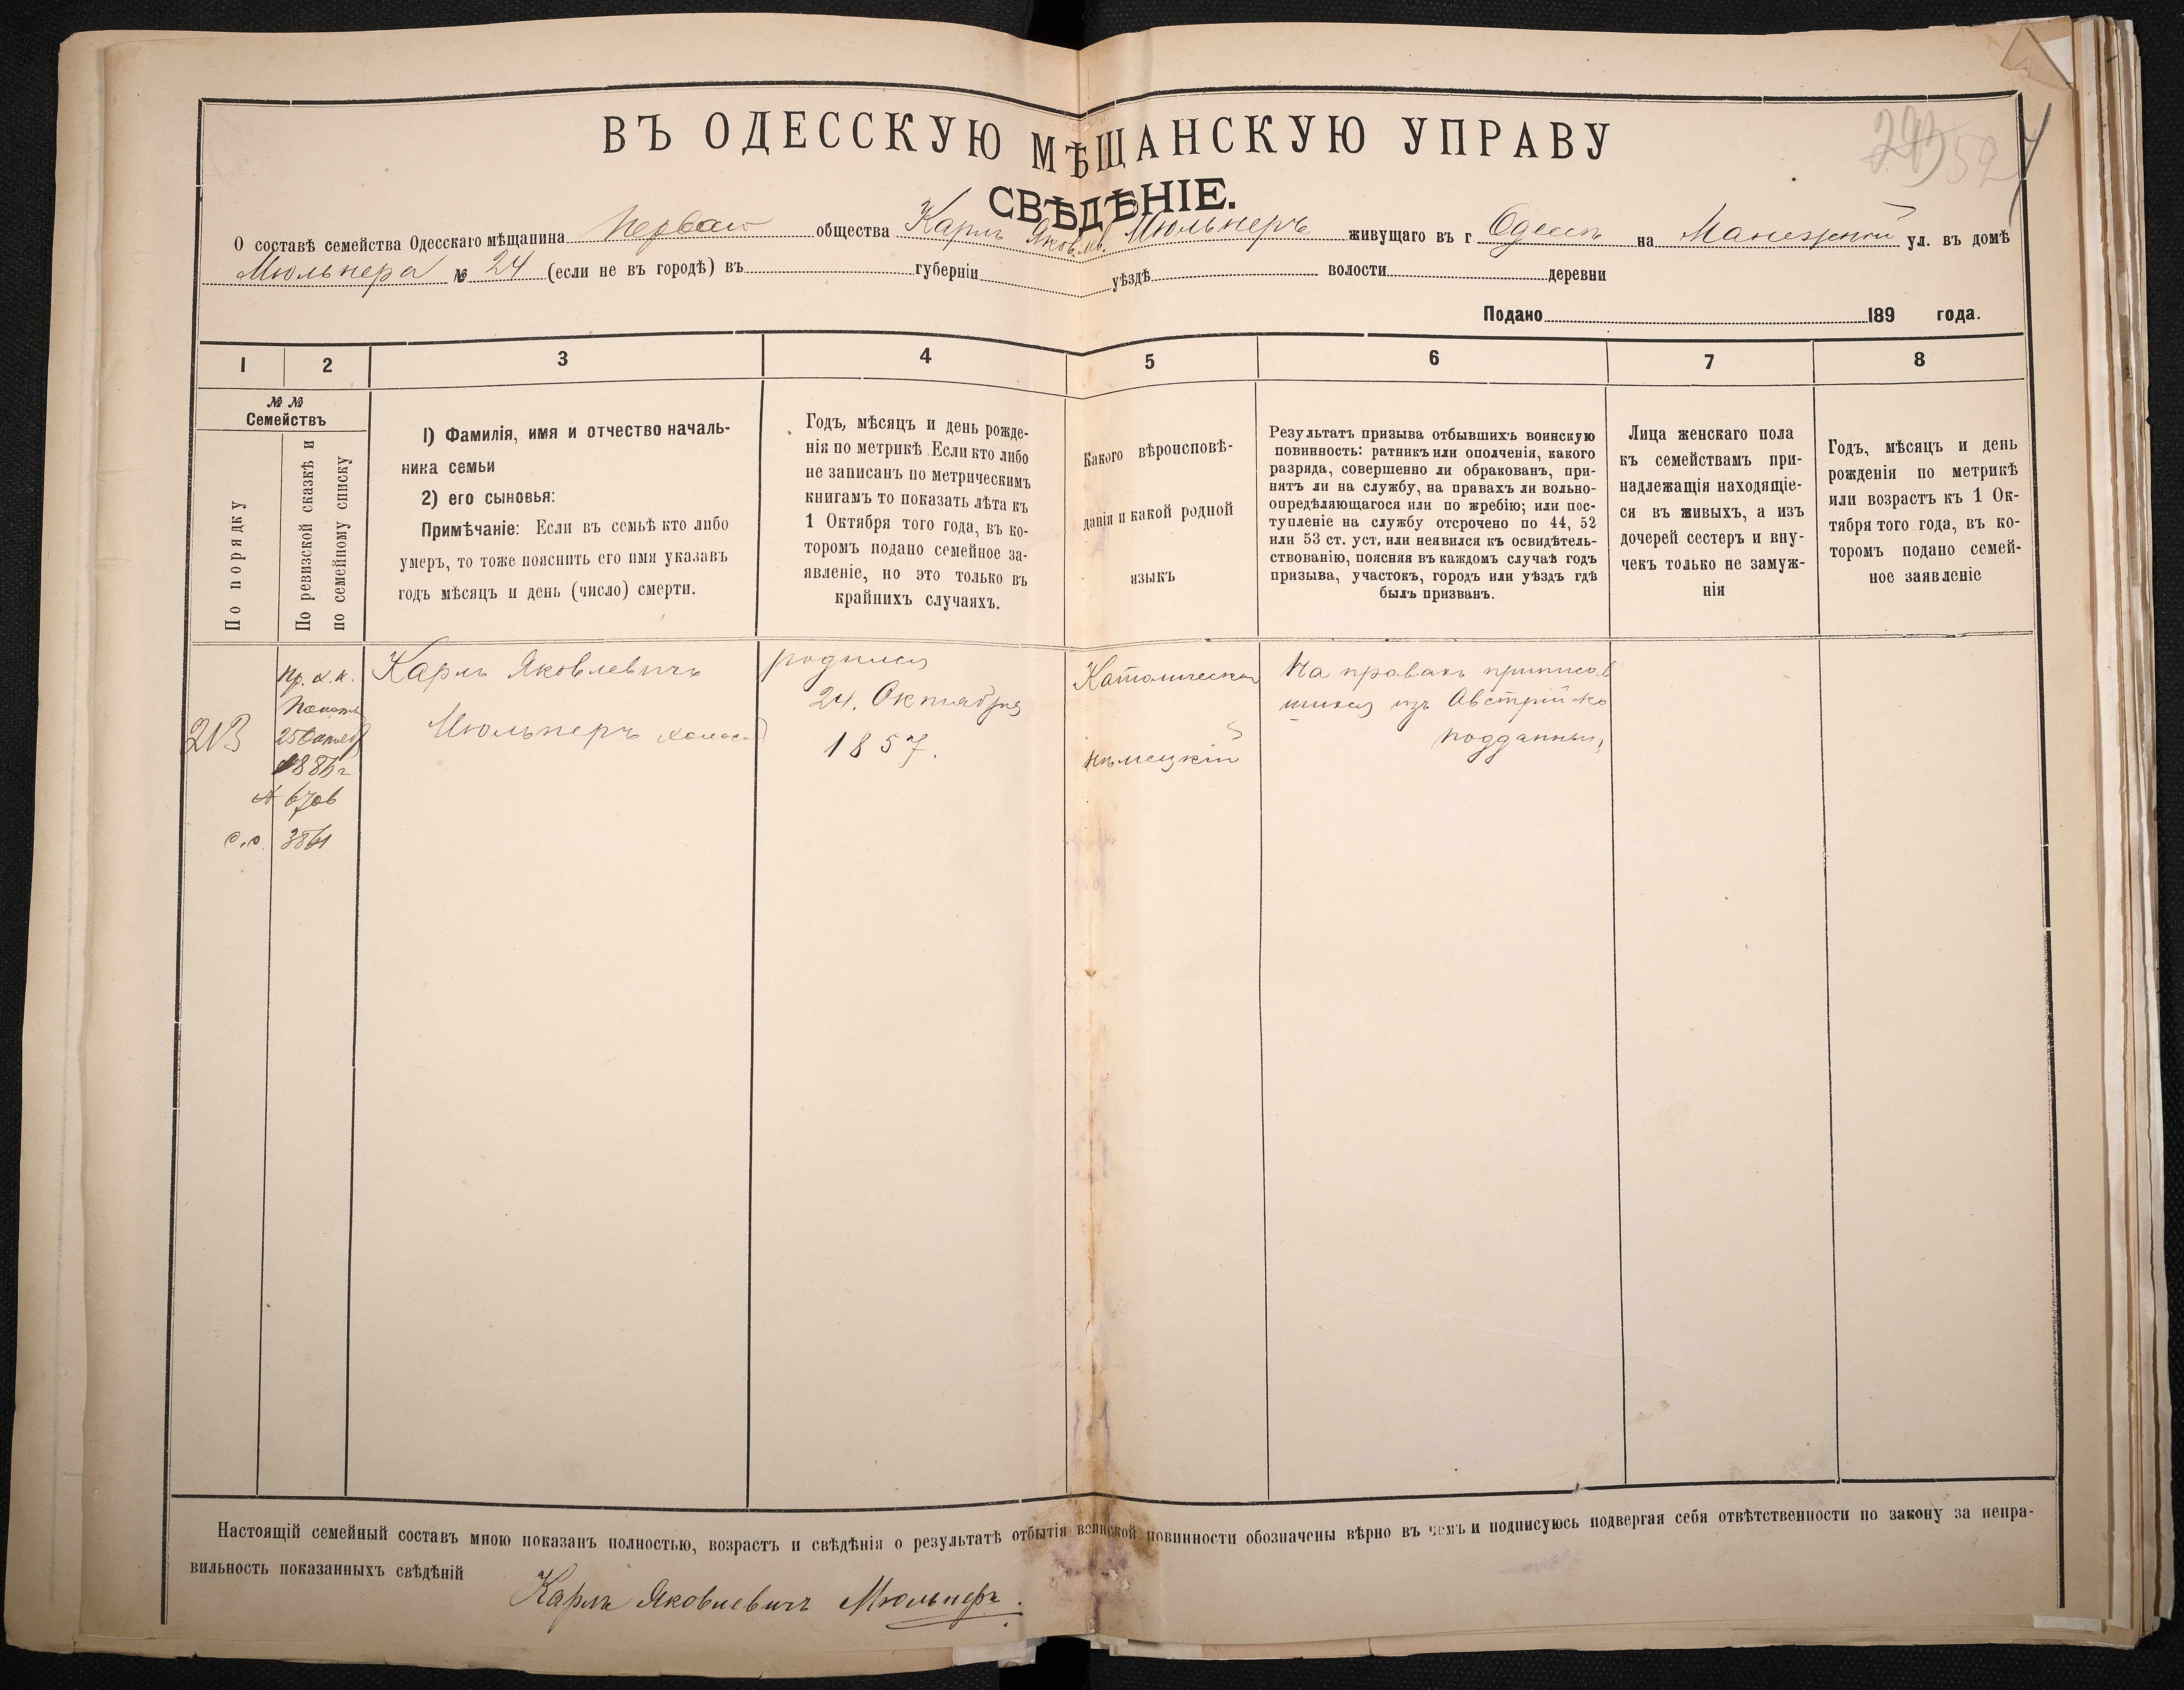 ВЪ ОДЕССКУЮ МѢЩАНСКУЮ УПРАВУ
СВѢДѢНІЕ.
О составѣ семейства Одесскаго мѣщанина Перваго общества Карлъ Яковлев. Мюльнеръ живущаго въ г Одессѣ на Манежной ул. въ домѣ
Мюльнера № 24 (если не въ городѣ) въ губерніи уѣздѣ волости деревни
Подано 189 года.
1 2 3 4 5 6 7 8
№ №
Семействъ
По порядку
По ревизской сказкѣ и
по семейному списку
1) Фамилія, имя и отчество началь-
ника семьи
2) его сыновья:
Примѣчаніе: Если въ семьѣ кто либо
умеръ, то тоже пояснить его имя указавъ
годъ мѣсяцъ и день (число) смерти.
Годъ, мѣсяцъ и день рожде-
нія по метрикѣ. Если кто либо
не записанъ по метрическимъ
книгамъ то показать лѣта къ
1 Октября того года, въ ко-
торомъ подано семейное за-
явленіе, но это только въ
крайнихъ случаяхъ.
Какого вѣроисповѣ-
данія и какой родной
языкъ
Результатъ призыва отбывшихъ воинскую
повинность: ратникъ или ополченія, какого
разряда, совершенно ли обракованъ, при-
нятъ ли на службу, на правахъ ли вольно-
опредѣляющагося или по жребію; или пос-
тупленіе на службу отсрочено по 44, 52
или 53 ст. уст. или неявился къ освидѣтель-
ствованію, поясняя въ каждомъ случаѣ годъ
призыва, участокъ, городъ или уѣздъ гдѣ
былъ призванъ.
Лица женскаго пола
къ семействамъ при-
надлежащія находящіе-
ся въ живыхъ, а изъ
дочерей сестеръ и вну-
чекъ только не замуж-
нія
Годъ, мѣсяцъ и день
рожденія по метрикѣ
или возрастъ къ 1 Ок-
тября того года, въ ко-
торомъ подано семей-
ное заявленіе
213
Карлъ Яковлевичъ
Мюльнеръ холост
родился
24. Октября
1857.
Католическая
нѣмецкій
На правахъ приписав
шихся изъ Австрійско
подданных
Настоящій семейный составъ мною показанъ полностью, возрастъ и свѣдѣнія о результатѣ отбытія воинской повинности обозначены вѣрно въ чемъ и подписуюсь подвергая себя отвѣтственности по закону за непра-
вильность показанныхъ свѣдѣній
Карлъ Яковлевичъ Мюльнеръ.